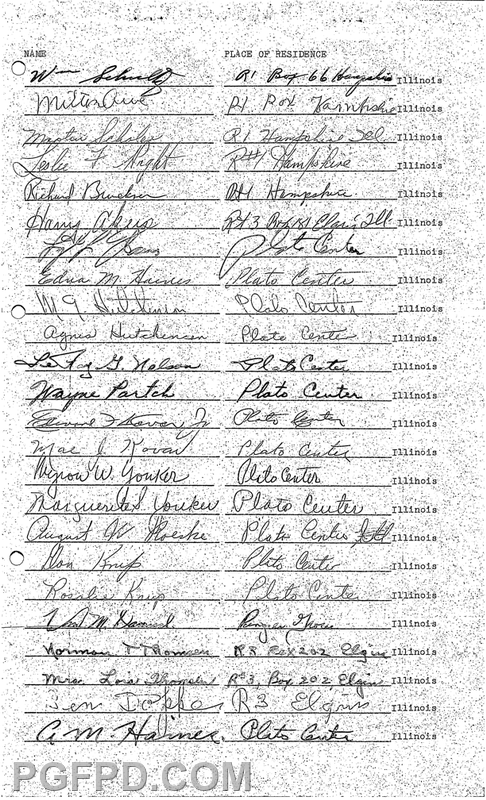 NAME PLACE OF RESIDENCE
Wm R1 Box 66 Illinois
Milton R1 Box Illinois
R1 Hampshire Ill. Illinois
Leslie F R#1 Hampshire Illinois
Richard R#1 Hampshire Illinois
Harry Akers Rt 3 Box Elgin Ill. Illinois
Plato Center Illinois
Edna M. Haines Plato Center Illinois
M G Hutchinson Plato Center Illinois
Agnes Hutchinson Plato Center Illinois
LeRoy G. Nelson Plato Center Illinois
Wayne Partch Plato Center Illinois
Edward F Kovar Jr Plato Center Illinois
Mae J. Kovar Plato Center Illinois
Myron W. Yonker Plato Center Illinois
Marguerite S. Yonker Plato Center Illinois
August W. Plato Center Ill Illinois
Don Knief Plato Center Illinois
Rosalie Knief Plato Center Illinois
M. Grove Illinois
Norman T Thomsen R 3 Box 202 Elgin Illinois
Mrs. Lois Thomsen R#3, Box 202, Elgin Illinois
Ben R3 Elgin Illinois
A. M. Haines. Plato Center Illinois
PGFPD.COM